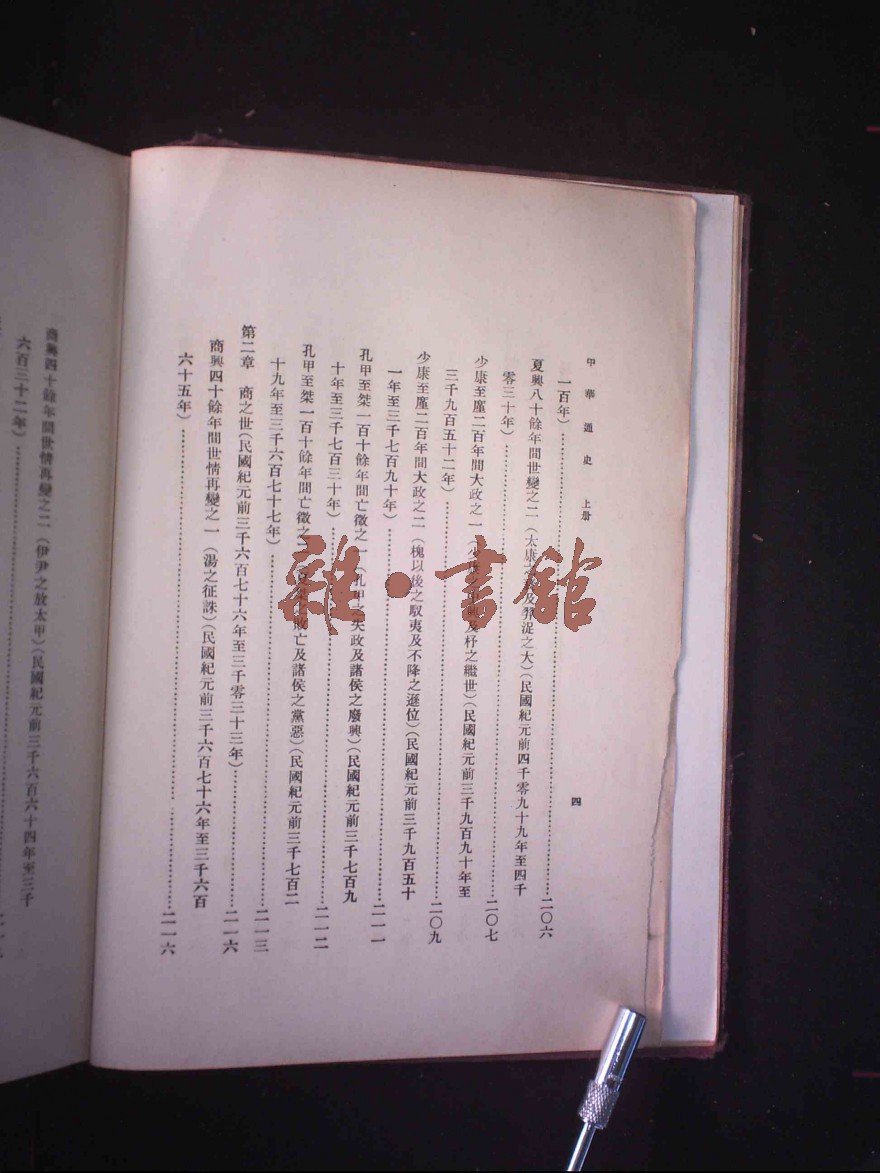 中華通史 上册
四
一百年)⋯⋯二〇六
夏興八十餘年間世變之二(太康之及羿浞之大)(民國紀元前四千零九十九年至四千
零三十年)⋯⋯二〇七
少康至廑二百年間大政之一(少康之中興及杼之繼世)(民國紀元前三千九百九十年至
三千九百五十二年)⋯⋯二〇九
少康至廑二百年間大政之二(槐以後之馭夷及不降之遜位)(民國紀元前三千九百五十
一年至三千七百九十年)⋯⋯二一一
孔甲至桀一百十餘年間亡徵之一(孔甲之失政及諸侯之廢興)(民國紀元前三千七百九
十年至三千七百三十年)⋯⋯二一二
孔甲至桀一百十餘年間亡徵之二(夏桀之敗亡及諸侯之黨惡)(民國紀元前三千七百二
十九年至三千六百七十七年)⋯⋯二一三
第二章 商之世(民國紀元前三千六百七十六年至三千零三十三年)⋯⋯二一六
商興四十餘年間世情再變之一(湯之征誅)(民國紀元前三千六百七十六年至三千六百
六十五年)⋯⋯二一六
商興四十餘年間世情再變之二(伊尹之放太甲)(民國紀元前三千六百六十四年至三千
六百三十二年)
雜·書館